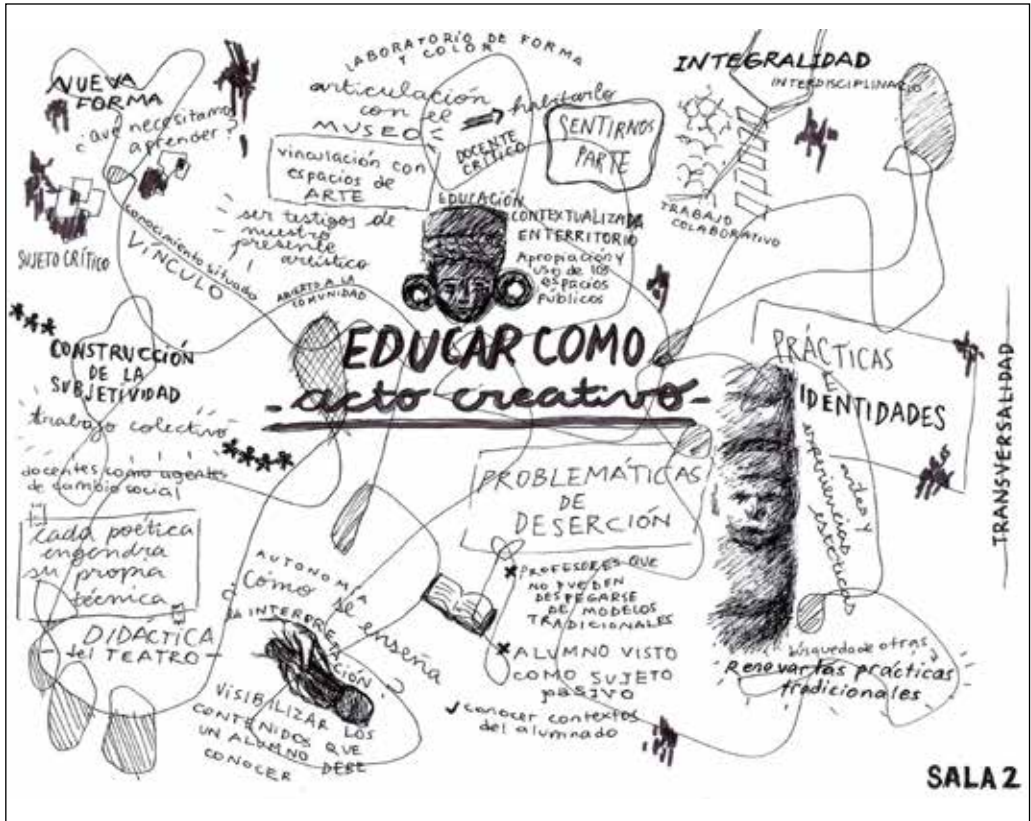 NUEVA
FORMA
¿qué necesitamos
aprender?
SUJETO CRÍTICO
conocimiento situado
VÍNCULO
LABORATORIO DE FORMA
Y COLOR
articulación
con el
MUSEO
habitarlo
DOCENTE
CRÍTICO
SENTIRNOS
PARTE
vinculación con
espacios de
ARTE
ser testigos de
nuestro
presente
artístico
ABIERTO A LA
COMUNIDAD
EDUCACIÓN
CONTEXTUALIZADA
EN TERRITORIO
Apropiación y
uso de los
espacios
públicos
INTEGRALIDAD
INTERDISCIPLINARIO
TRABAJO
COLABORATIVO
EDUCAR COMO
- acto creativo -
CONSTRUCCIÓN
DE LA
SUBJETIVIDAD
trabajo colectivo
docentes como agentes
de cambio social
cada poética
engendra
su propia
técnica
DIDÁCTICA
del TEATRO
AUTONOMÍA
¿Cómo se enseña
LA INTERPRETACIÓN
?
VISIBILIZAR LOS
CONTENIDOS QUE
UN ALUMNO DEBE
CONOCER
PROBLEMÁTICAS
DE
DESERCIÓN
PROFESORES QUE
NO PUEDEN
DESPEGARSE
DE MODELOS
TRADICIONALES
ALUMNO VISTO
COMO SUJETO
PASIVO
conocer contextos
del alumnado
PRÁCTICAS
IDENTIDADES
artes y
experiencias
estéticas
TRANSVERSALIDAD
búsqueda de otras
Renovar las prácticas
tradicionales
SALA 2